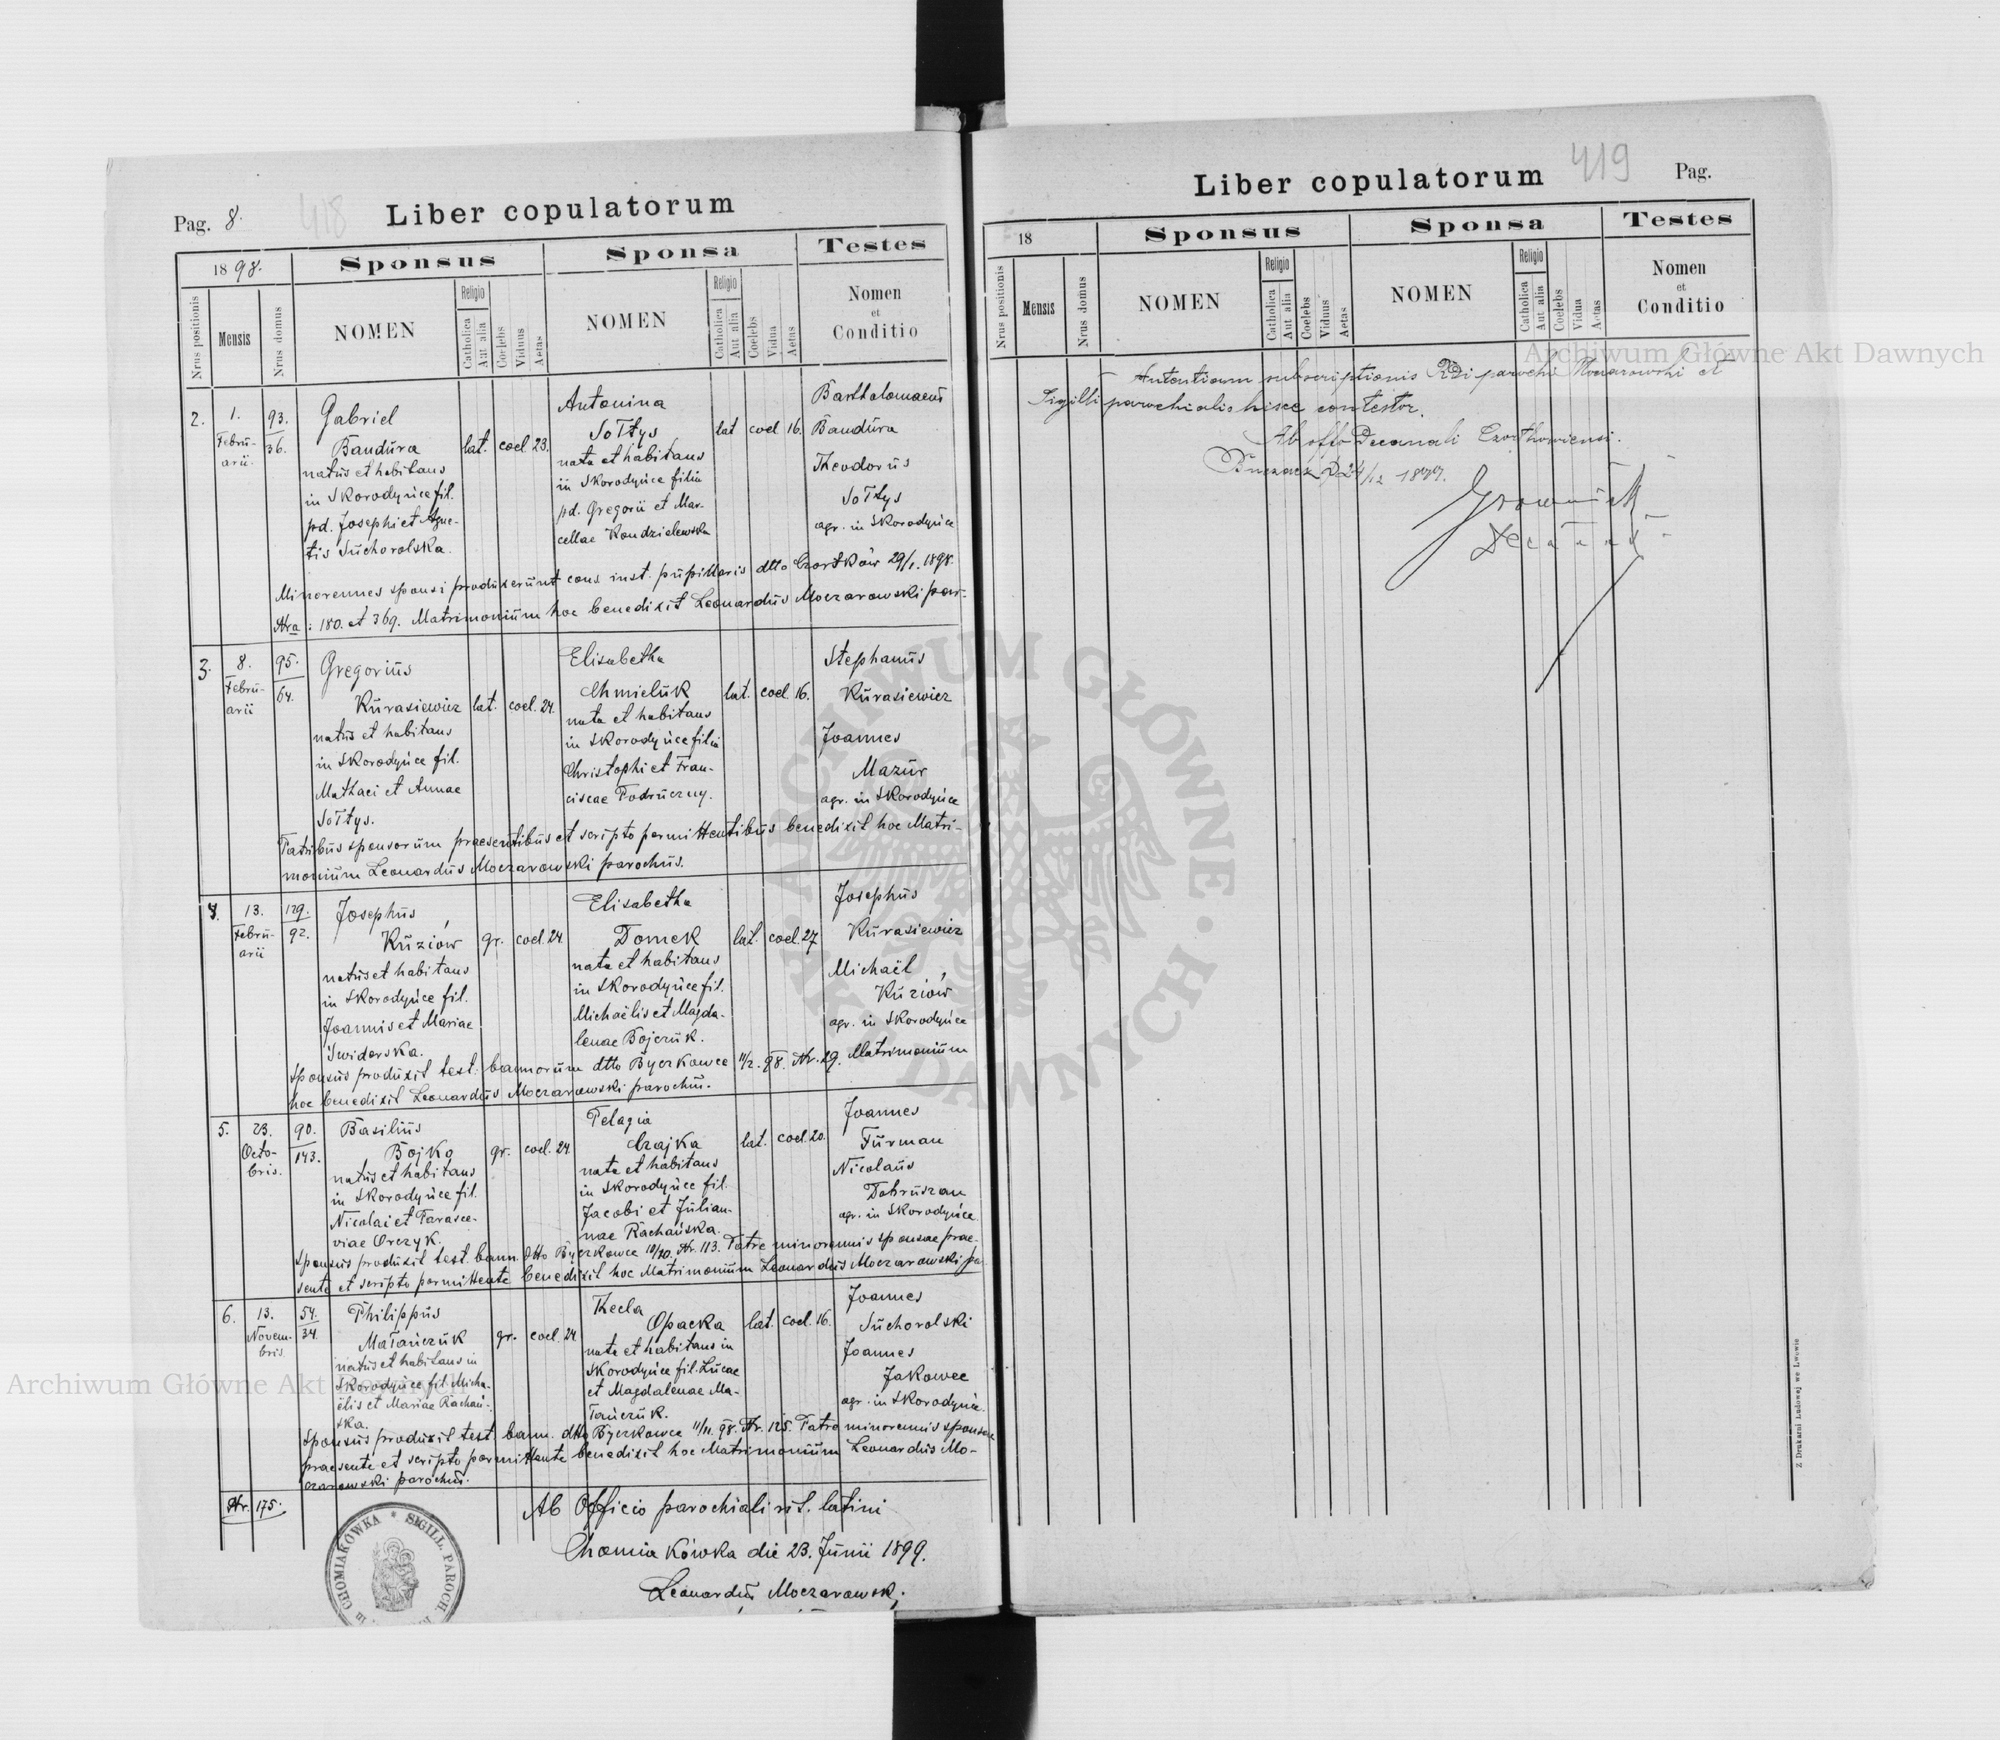 Pag. 8.
418
Liber copulatorum
1898.
Sponsus
Sponsa
Testes
Nrus positionis
Mensis
Nrus domus
NOMEN
Religio
Catholica
Aut alia
Coelebs
Viduus
Aetas
NOMEN
Religio
Catholica
Aut alia
Coelebs
Vidua
Aetas
Nomen
et
Conditio
2.
1.
Febru-
arii.
93.
36.
Gabriel
Bandura
natus et habitans
in Skorodyńce fil.
pd. Josephi et Agne-
tis Suchorolska.
lat.
coel
23.
Antonina
Sołtys
nata et habitans
in Skorodyńce filia
pd. Gregorii et Mar-
cellae Kondzielewska
lat
coel
16.
Bartholomaeus
Bandura
Theodorus
Sołtys
agr. in Skorodyńce
Minorennes sponsi produxerunt cons. inst. pupillaris dtto Czortków 29/1. 1898.
Nra: 180. et 369. Matrimonium hoc benedixit Leonardus Moczarowski par-
3.
8.
Febru-
arii
95.
64.
Gregorius
Kurasiewicz
natus et habitans
in Skorodyńce fil.
Mathaei et Annae
Sołtys.
lat.
coel.
24.
Elisabetha
Chmieluk
nata et habitans
in Skorodyńce filia
Christophi et Fran-
ciscae Podruczny.
lat.
coel.
16.
Stephanus
Kurasiewicz
Joannes
Mazur
agr. in Skorodyńce
Patribus sponsorum praesentibus et scripto permittentibus benedixit hoc Matri-
monium Leonardus Moczarowski parochus.
4.
13.
Febru-
arii
129.
92.
Josephus
Kuziów
natus et habitans
in Skorodyńce fil.
Joannis et Mariae
Swiderska.
gr.
coel.
24.
Elisabetha
Domek
nata et habitans
in Skorodyńce fil.
Michaëlis et Magda-
lenae Bojczuk.
lat.
coel.
27
Josephus
Kurasiewicz
Michaël
Kuziów
agr. in Skorodyńce
Sponsus produxit test. bannorum dtto Byczkowce 11/2. 98. Nr. 29. Matrimonium
hoc benedixit Leonardus Moczarowski parochus.
5.
23.
Octo-
bris.
90.
143.
Basilius
Bojko
natus et habitans
in Skorodyńce fil.
Nicolai et Parasce-
viae Orczyk.
gr.
coel.
24
Pelagia
Czajka
nata et habitans
in Skorodyńce fil.
Jacobi et Julian-
nae Rachańska.
lat.
coel.
20.
Joannes
Furman
Nicolaus
Dobruszan
agr. in Skorodyńce.
Sponsus produxit test. bann. dtto Byczkowce 12/10. Nr. 113. Patre minorennis sponsae prae-
sente et scripto permittente benedixit hoc Matrimonium Leonardus Moczarowski pa
6.
13.
Novem-
bris
54.
34.
Philippus
Małańczuk
natus et habitans in
Skorodyńce fil. Micha-
ëlis et Mariae Rachań-
ska.
gr.
coel.
24
Thecla
Opacka
nata et habitans in
Skorodyńce fil. Lucae
et Magdalenae Ma-
łańczuk.
lat.
coel.
16.
Joannes
Suchorolski
Joannes
Jakowec
agr. in Skorodyńce.
Sponsus produxit test. bann. dtto Byczkowce 11/11. 98. Nr. 125. Patre minorennis sponsae
praesente et scripto permittente benedixit hoc Matrimonium Leonardus Mo-
czarowski parochus.
Nr. 175.
Ab Officio parochiali rit. latini
Chomiakówka die 23. Junii 1899.
Leonardus Moczarowski
CHOMIAKÓWKA * SIGILL. PAROCH.
419
Liber copulatorum
Pag.
18
Sponsus
Sponsa
Testes
Nrus positionis
Mensis
Nrus domus
NOMEN
Religio
Catholica
Aut alia
Coelebs
Viduus
Aetas
NOMEN
Religio
Catholica
Aut alia
Coelebs
Vidua
Aetas
Nomen
et
Conditio
subscriptionis Rdi parochi Moczarowski et
Sigilli parochialis hisce contestor.
Ab offo Decanali Czortkoviensi.
Buczacz d 24/12 1899.
Gromnicki
Decanus
Z Drukarni Ludowej we Lwowie
Archiwum Główne Akt Dawnych
Archiwum Główne Akt Dawnych
ARCHIWUM GŁÓWNE · AKT DAWNYCH ·